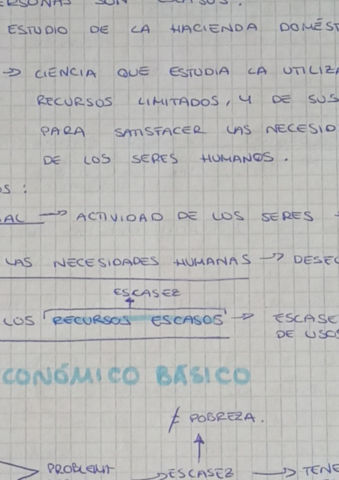 ESTUDIO DE LA HACIENDA DOMÉST
→ CIENCIA QUE ESTUDIA LA UTILIZA
RECURSOS LIMITADOS, Y DE SUS
PARA SATISFACER LAS NECESID
DE LOS SERES HUMANOS.
OS:
AL → ACTIVIDAD DE LOS SERES
LAS NECESIDADES HUMANAS → DESEC
ESCASEZ
LOS RECURSOS ESCASOS → ESCASE
DE USOS
CONÓMICO BÁSICO
≠ POBREZA.
PROBLEMA → ESCASEZ → TENE